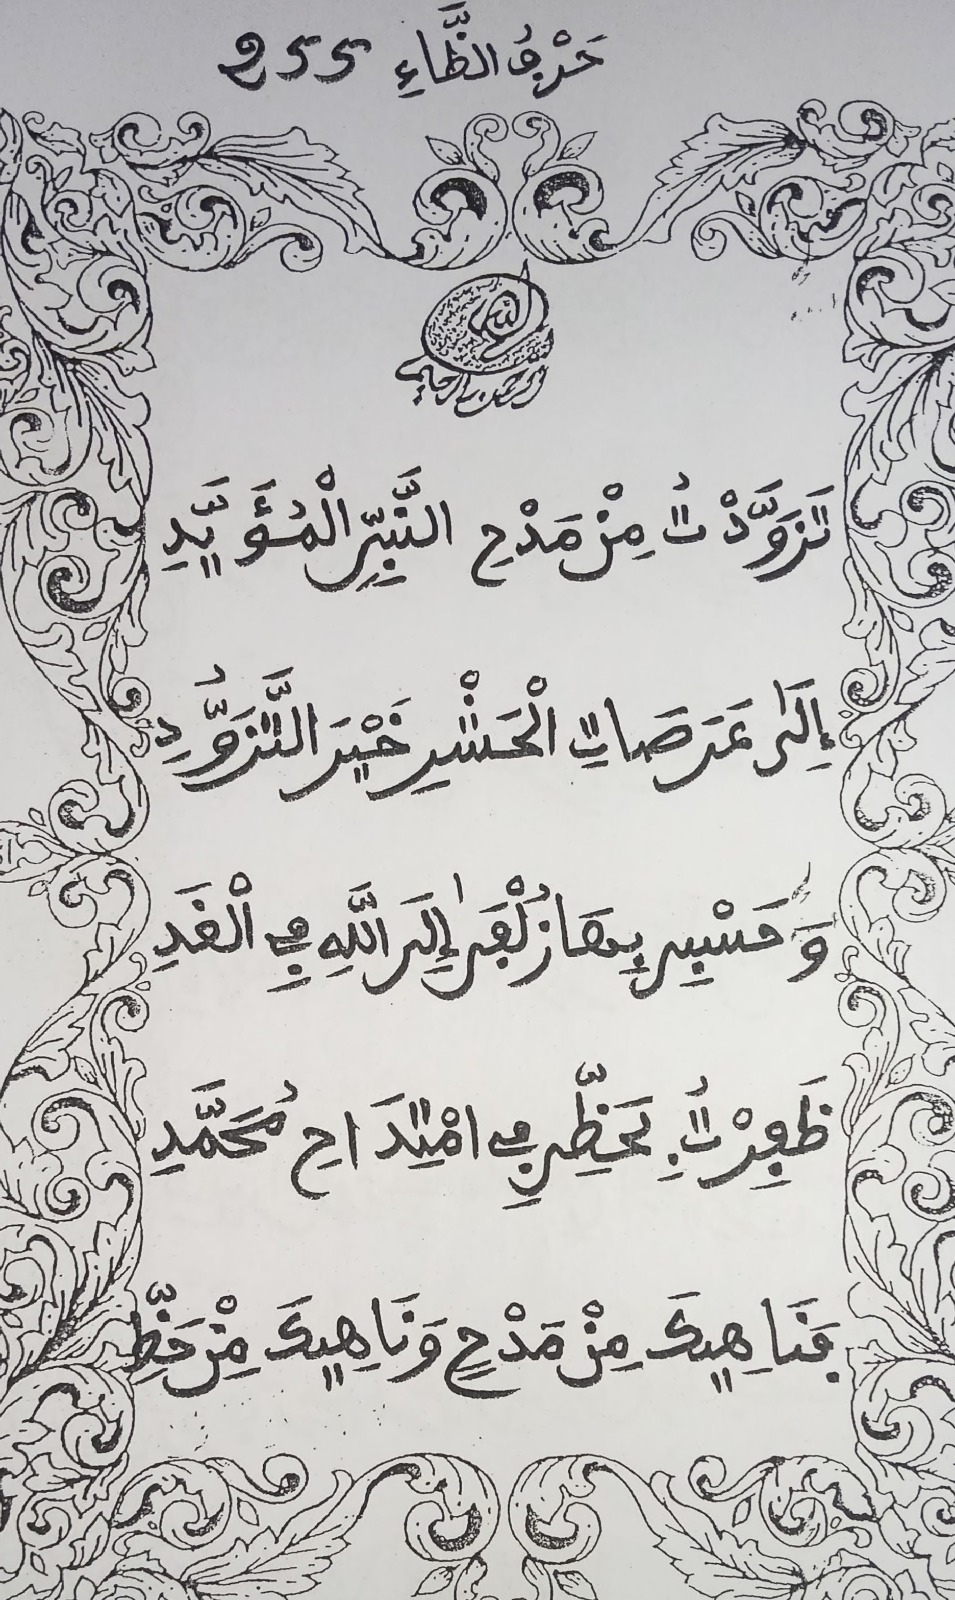 حَرْفُ الظَّاءِ 255
اللّه الرحمن الرحيم
تَزَوَّدْتُ مِنْ مَدْحِ النَّبِيِّ الْمُؤَيَّدِ
إِلَى عَرَصَاتِ الْحَشْرِ خَيْرَ التَّزَوُّدِ
وَحَسْبِي بِهَا زُلْفَى إِلَى اللَّهِ فِي الْغَدِ
ظَفِرْتُ بِحَظِّي فِي امْتِدَاحِ مُحَمَّدِ
فَنَاهِيكَ مِنْ مَدْحٍ وَنَاهِيكَ مِنْ حَظِّ